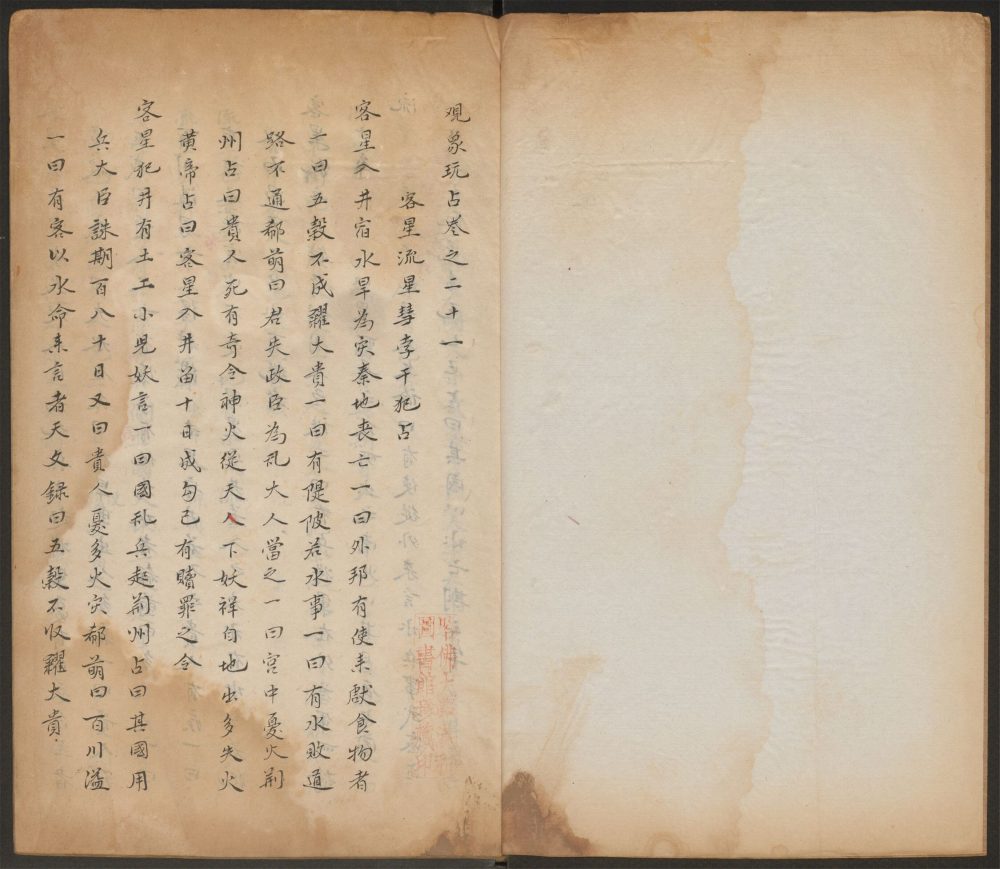 观象玩占卷之二十一
客星流星彗孛干犯占
客星入井宿水旱为灾秦地丧亡一曰外邦有使来献食物者
一曰五穀不成糴大贵一曰有隄陂若水事一曰有水败道
路不通郗萌曰君失政臣为乱大人當之一曰宫中憂火荆
州占曰贵人死有奇令神火從天人下妖祥自地出多失火
黄帝占曰客星入井留十日成勾己有贖罪之令
客星犯井有土工小兒妖言一曰國乱兵起荊州占曰其國用
兵大臣誅期百八十日又曰貴人憂多火灾郗萌曰百川溢
一曰有客以水命来言者天文録曰五穀不收糴大貴
哈佛大
圖書館珍藏印